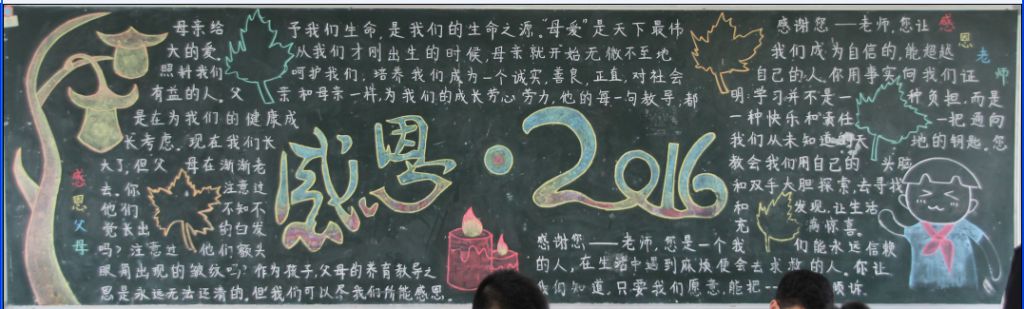 母亲给予我们生命,是我们的生命之源。"母爱"是天下最伟
大的爱。从我们才刚出生的时候,母亲就开始无微不至地
照料我们呵护我们,培养我们成为一个诚实,善良,正直,对社会
有益的人。父亲和母亲一样,为我们的成长劳心劳力,他的每一句教导,都
是在为我们的健康成
长考虑。现在我们长
大了,但父母在渐渐老
去。你注意过
他们不知不
觉长出的白发
吗?注意过他们额头
眼角出现的皱纹吗?作为孩子,父母的养育教导之
恩是永远无法还清的。但我们可以尽我们所能感恩。
感恩父母
感恩·2016
感谢您——老师,您是一个我
的人,在生活中遇到麻烦便会去求救的人。您让
我们知道,只要我们愿意,能把
感谢您——老师,您让
我们成为自信的,能超越
自己的人,你用事实向我们证
明:学习并不是一种负担,而是
一种快乐和责任一把通向
我们从未知道的天地的钥匙。您
教会我们用自己的头脑
和双手大胆探索,去寻找
和发现,让生活
充满惊喜。
们能永远信赖
倾诉
感恩老师